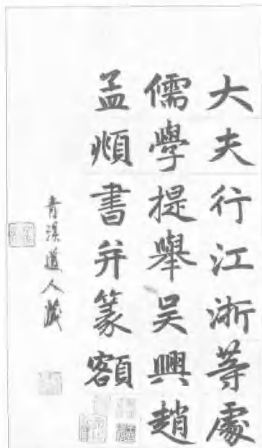 大夫行江浙等處
儒學提舉吳興趙
孟頫書并篆額
青溪道人藏